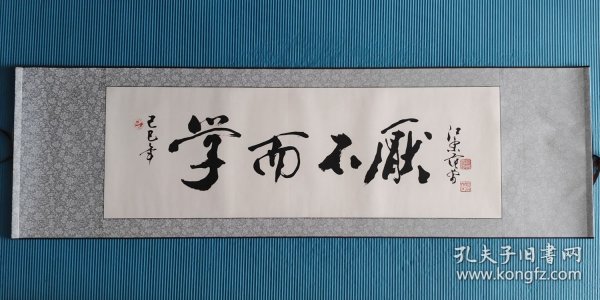 己巳年
学而不厭
江东
孔夫子旧书网
www.kongfz.com